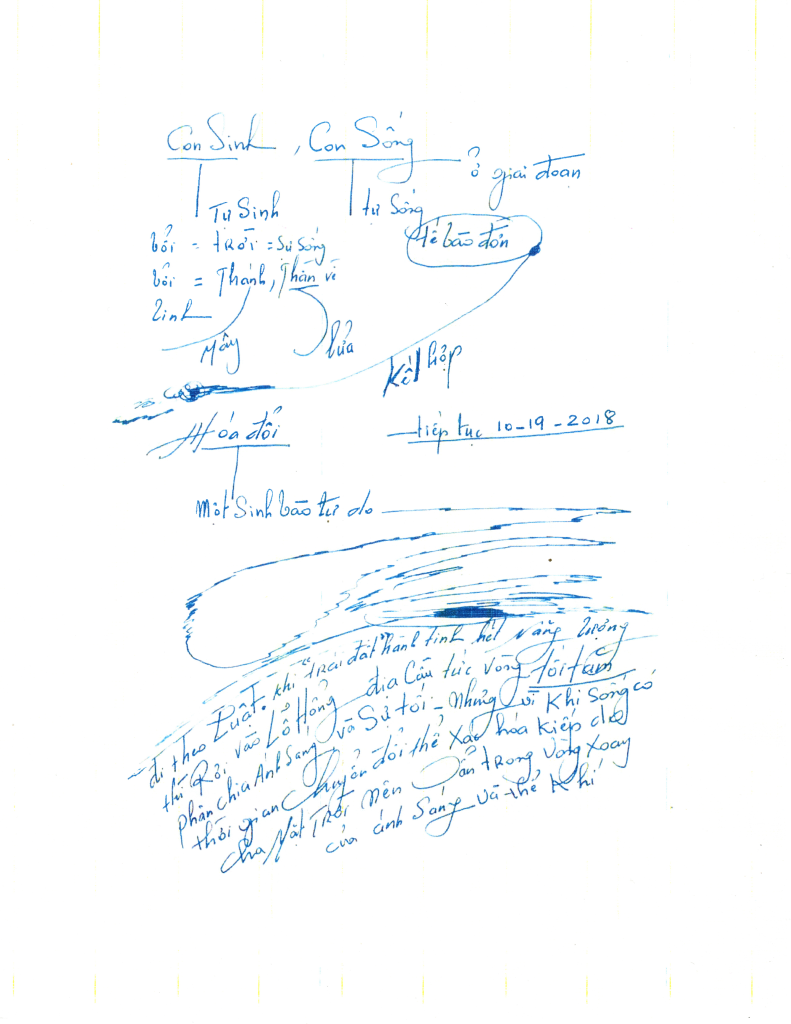 Con Sinh, Con Sống
ở giai đoạn
Tự Sinh
tự Sống
bởi = trời = Sự Sống
tế bào đơn
bởi = Thánh, Thần vệ
Linh
Mây
lửa
Kết hợp
Hóa đổi
tiếp tục 10-19-2018
Một Sinh bào tự do
đi theo Luật. khi "trái đất" hành tinh hết năng lượng
thì Rơi vào Lổ Hổng địa Cầu tức vòng tối tăm
phân chia Ánh Sáng và Sự tối - Nhưng vì Khi Sống có
thời gian Chuyển đổi thể xác hóa Kiếp do
cha Mặt Trời nên Dẫn trong vòng xoay
của ánh Sáng và thể Khí